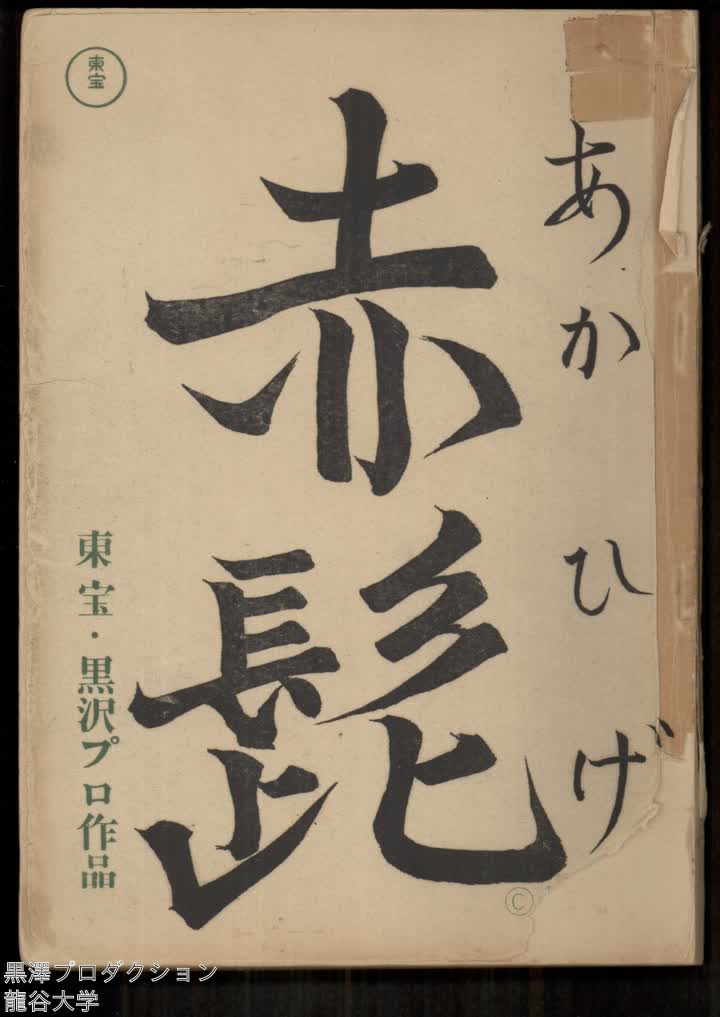 あかひげ
赤髭
東宝
東宝・黒沢プロ作品
©
黒澤プロダクション
龍谷大学